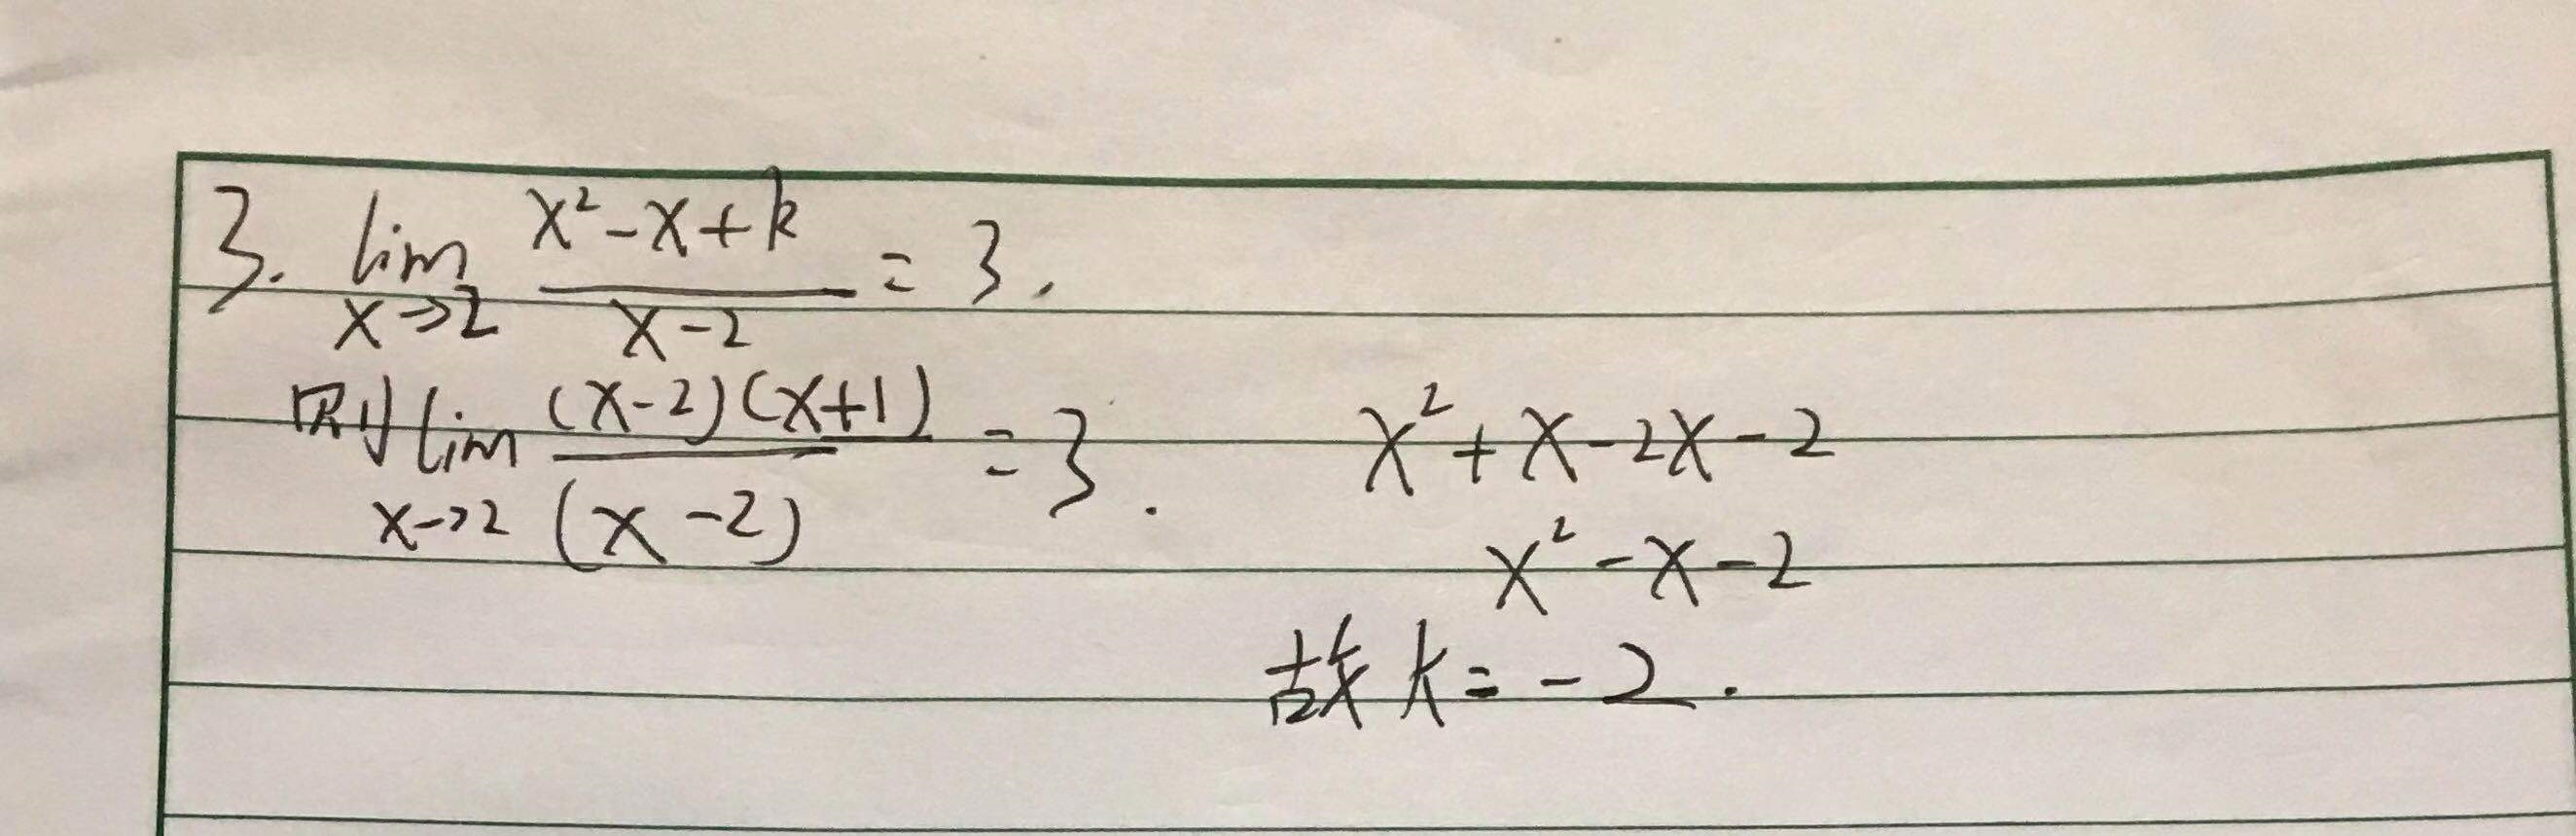 3. lim x→2 (x²-x+k)/(x-2) = 3.
则 lim x→2 (x-2)(x+1)/(x-2) = 3.
x²+x-2x-2
x²-x-2
故 k=-2.